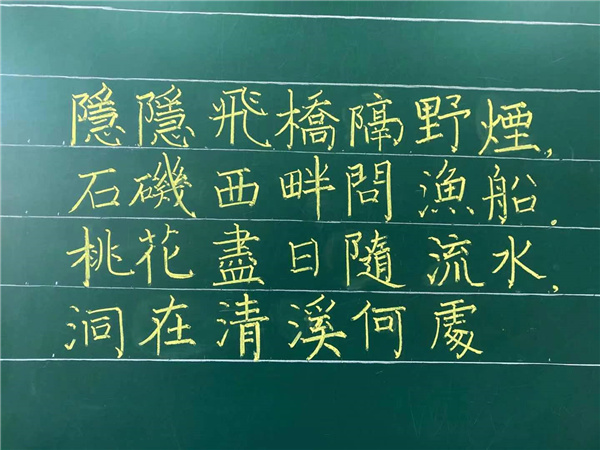 隱隱飛橋隔野煙,
石磯西畔問漁船.
桃花盡日隨流水,
洞在清溪何處